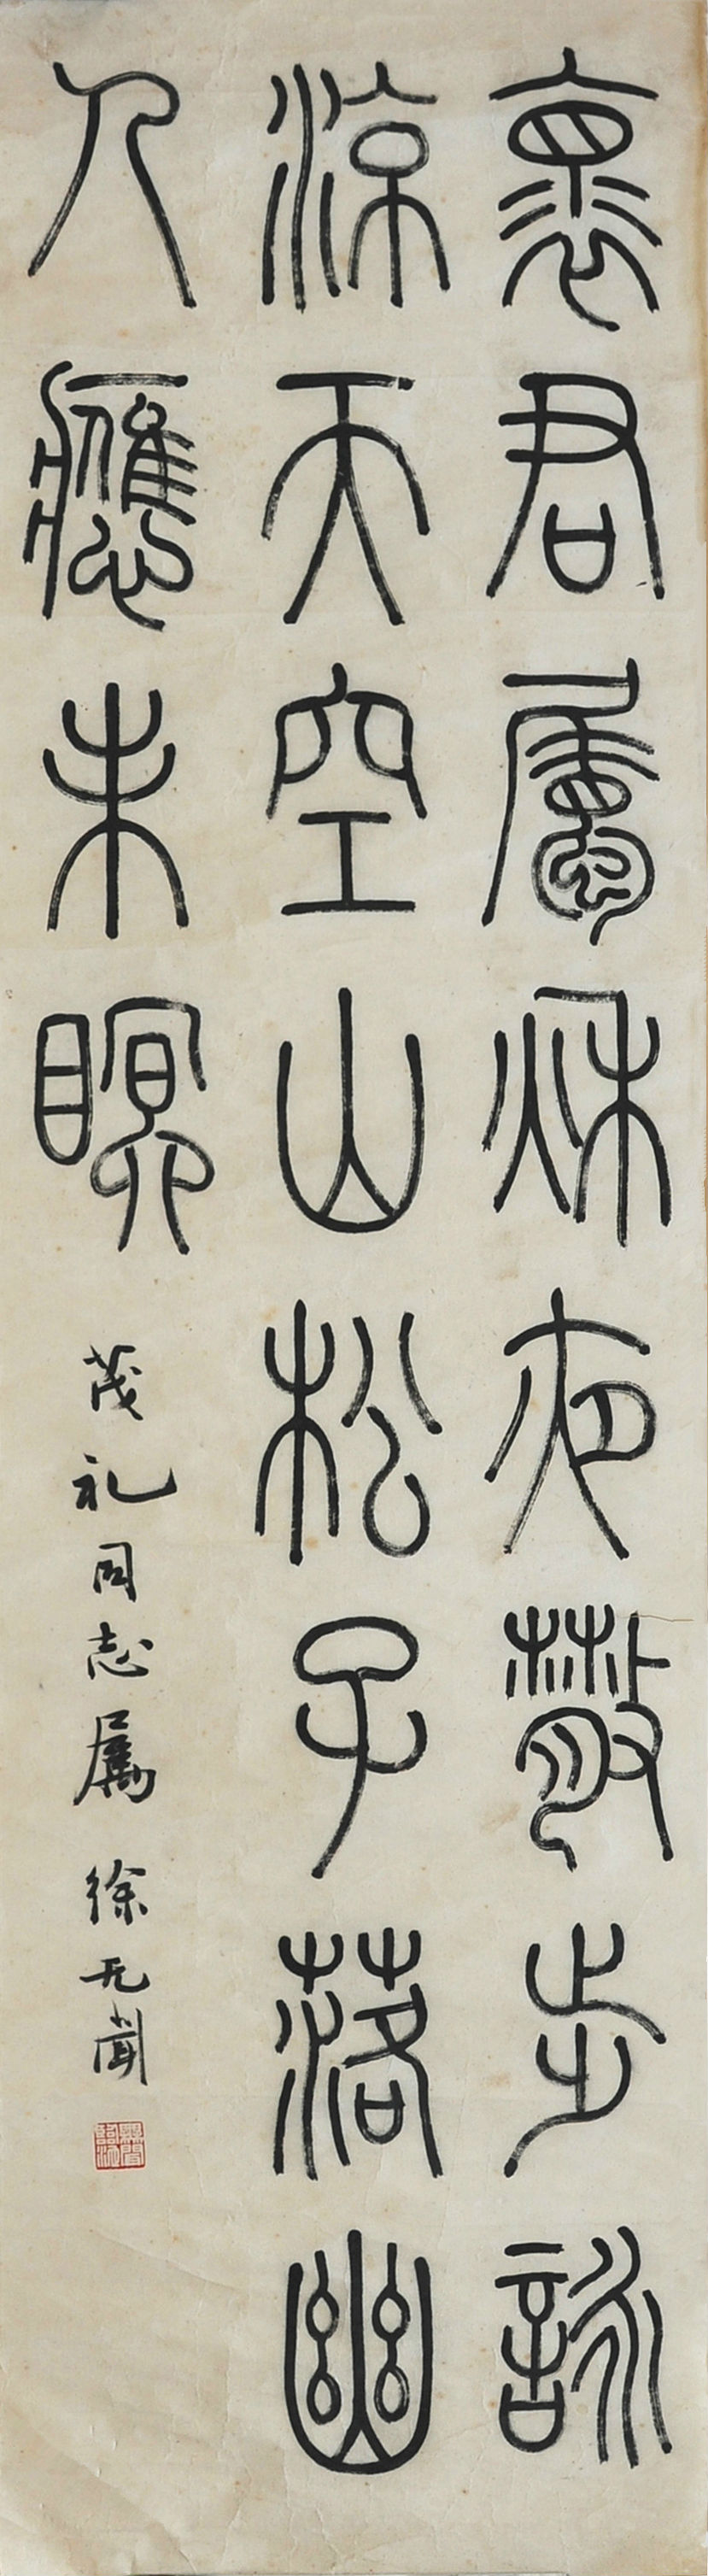 褱君屬秌夜散步詠
涼天空山松子落幽
人應未瞑
茂礼同志属 徐无聞